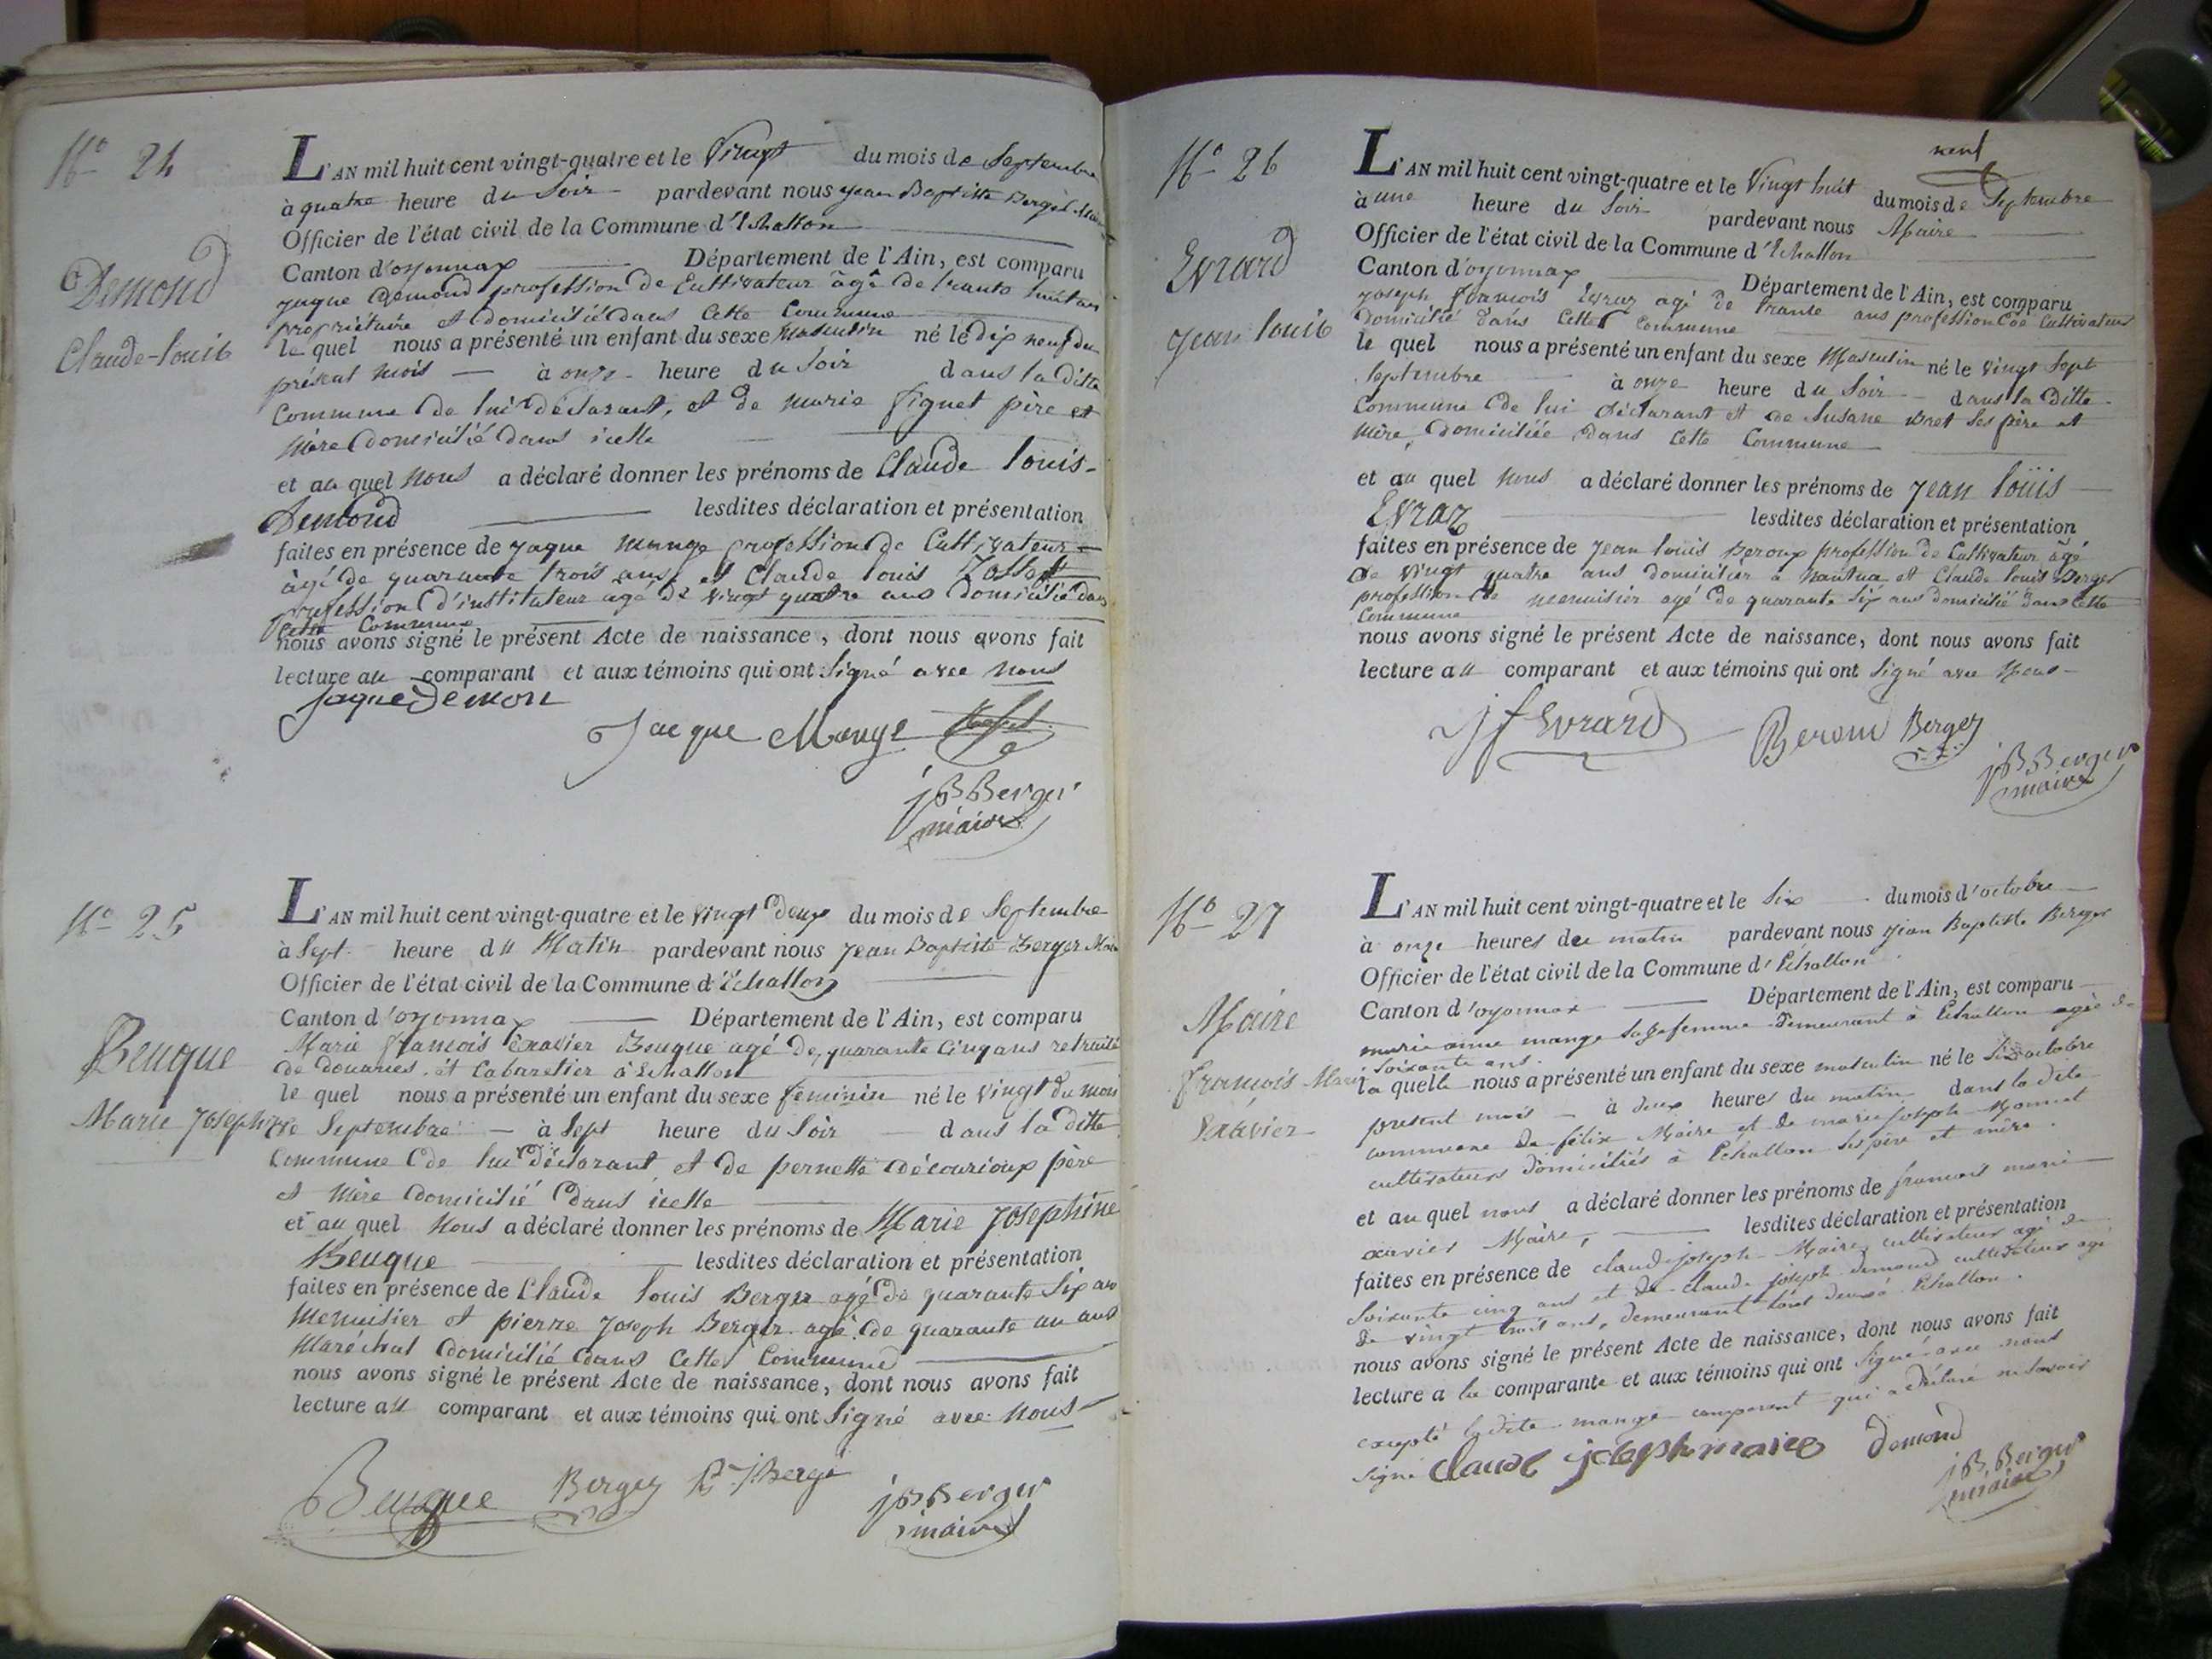 N° 24
Demond
Claude-louis
L'AN mil huit cent vingt-quatre et le Vingt du mois de Septembre
à quatre heure du Soir pardevant nous jean Baptiste Berger Maire
Officier de l'état civil de la Commune d'Echallon
Canton d'oyonnax Département de l'Ain, est comparu
jaque Demond profession de Cultivateur âgé de trante huit ans
propriétaire et domicilié dans cette Commune
le quel nous a présenté un enfant du sexe Masculin né le dix neuf du
présent mois — à onze heure du Soir dans la ditte
Commune de lui déclarant, et de Marie figuet père et
Mère domicilié dans icelle
et au quel nous a déclaré donner les prénoms de Claude louis
Demond lesdites déclaration et présentation
faites en présence de jaque Monge profession de Cultivateur
âgé de quarante trois ans, et Claude louis
profession d'instituteur agé de vingt quatre ans domicilié dans
cette Commune
nous avons signé le présent Acte de naissance, dont nous avons fait
lecture au comparant et aux témoins qui ont Signé avec nous
jaque Demon
Jacque Monge
jB Berger
maire
N° 25
Beuque
Marie Josephine
L'AN mil huit cent vingt-quatre et le vingt deux du mois de Septembre
à Sept heure du Matin pardevant nous jean Baptiste Berger Maire
Officier de l'état civil de la Commune d'Echallon
Canton d'oyonnax Département de l'Ain, est comparu
Marie françois Exavier Beuque agé de quarante cinq ans retraité
de douanes et Cabaretier à Echallon
le quel nous a présenté un enfant du sexe féminin né le vingt du mois
de Septembre — à Sept heure du Soir dans la ditte
Commune de lui déclarant et de pernette Décourioux père
et Mère domicilié dans icelle
et au quel Nous a déclaré donner les prénoms de Marie Josephine
Beuque lesdites déclaration et présentation
faites en présence de Claude louis Berger agé de quarante Six ans
Menuisier et pierre Joseph Berger agé de quarante un ans
Maréchal domicilié dans cette Commune
nous avons signé le présent Acte de naissance, dont nous avons fait
lecture au comparant et aux témoins qui ont Signé avec Nous
Beuque Berger P J Berge
jB Berger
maire
N° 26
Evrard
jean louis
neuf
L'AN mil huit cent vingt-quatre et le Vingt huit du mois de Septembre
à une heure du Soir pardevant nous Maire
Officier de l'état civil de la Commune d'Echallon
Canton d'oyonnax Département de l'Ain, est comparu
joseph françois Evraz agé de trante ans profession de Cultivateur
Domicilié dans Cette Commune
le quel nous a présenté un enfant du sexe Masculin né le vingt Sept
Septembre à onze heure du Soir dans la Ditte
Commune de lui déclarant et de Susane Bret Ses père et
Mère, domiciliée dans cette Commune
et au quel nous a déclaré donner les prénoms de jean louis
Evraz lesdites déclaration et présentation
faites en présence de jean louis Beroux profession de Cultivateur âgé
de vingt quatre ans domicilier a Nantua et Claude louis Berger
profession de menuisier agé de quarante Six ans domicilié dans cette
Commune
nous avons signé le présent Acte de naissance, dont nous avons fait
lecture au comparant et aux témoins qui ont signé avec Nous
jf Evrard Beroud Berger
jB Berger
maire
N° 27
Maire
françois Marie
Exavier
L'AN mil huit cent vingt-quatre et le Six du mois d'octobre
à onze heures du matin pardevant nous jean Baptiste Berger
Officier de l'état civil de la Commune d'Echallon
Canton d'oyonnax Département de l'Ain, est comparu
marie anne mange Sagefemme demeurant à Echallon agée de
Soixante ans.
la quelle nous a présenté un enfant du sexe masculin né le Six octobre
present mois — à deux heures du matin dans la dite
commune de félix Maire et de marie joseph Monnet
cultivateurs domiciliés à Echallon ses père et mère.
et au quel nous a déclaré donner les prénoms de francois marie
xavier Maire, lesdites déclaration et présentation
faites en présence de claude joseph Maire, cultivateur agé de
Soixante cinq ans et de claude joseph demond cultivateur agé
de vingt trois ans, demeurant tous deux à Echallon.
nous avons signé le présent Acte de naissance, dont nous avons fait
lecture a la comparante et aux témoins qui ont signé avec nous
excepté ladite mange comparant qui a déclaré ne savoir
signé claude joseph maire Demond
jB Berger
maire